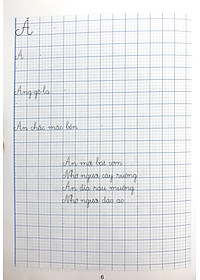 Ă
Ă
Ăng-gô-la
Ăn chắc mặc bền
Ăn một bát cơm
Nhớ người cày ruộng
Ăn đĩa rau muống
Nhớ người đào ao
6